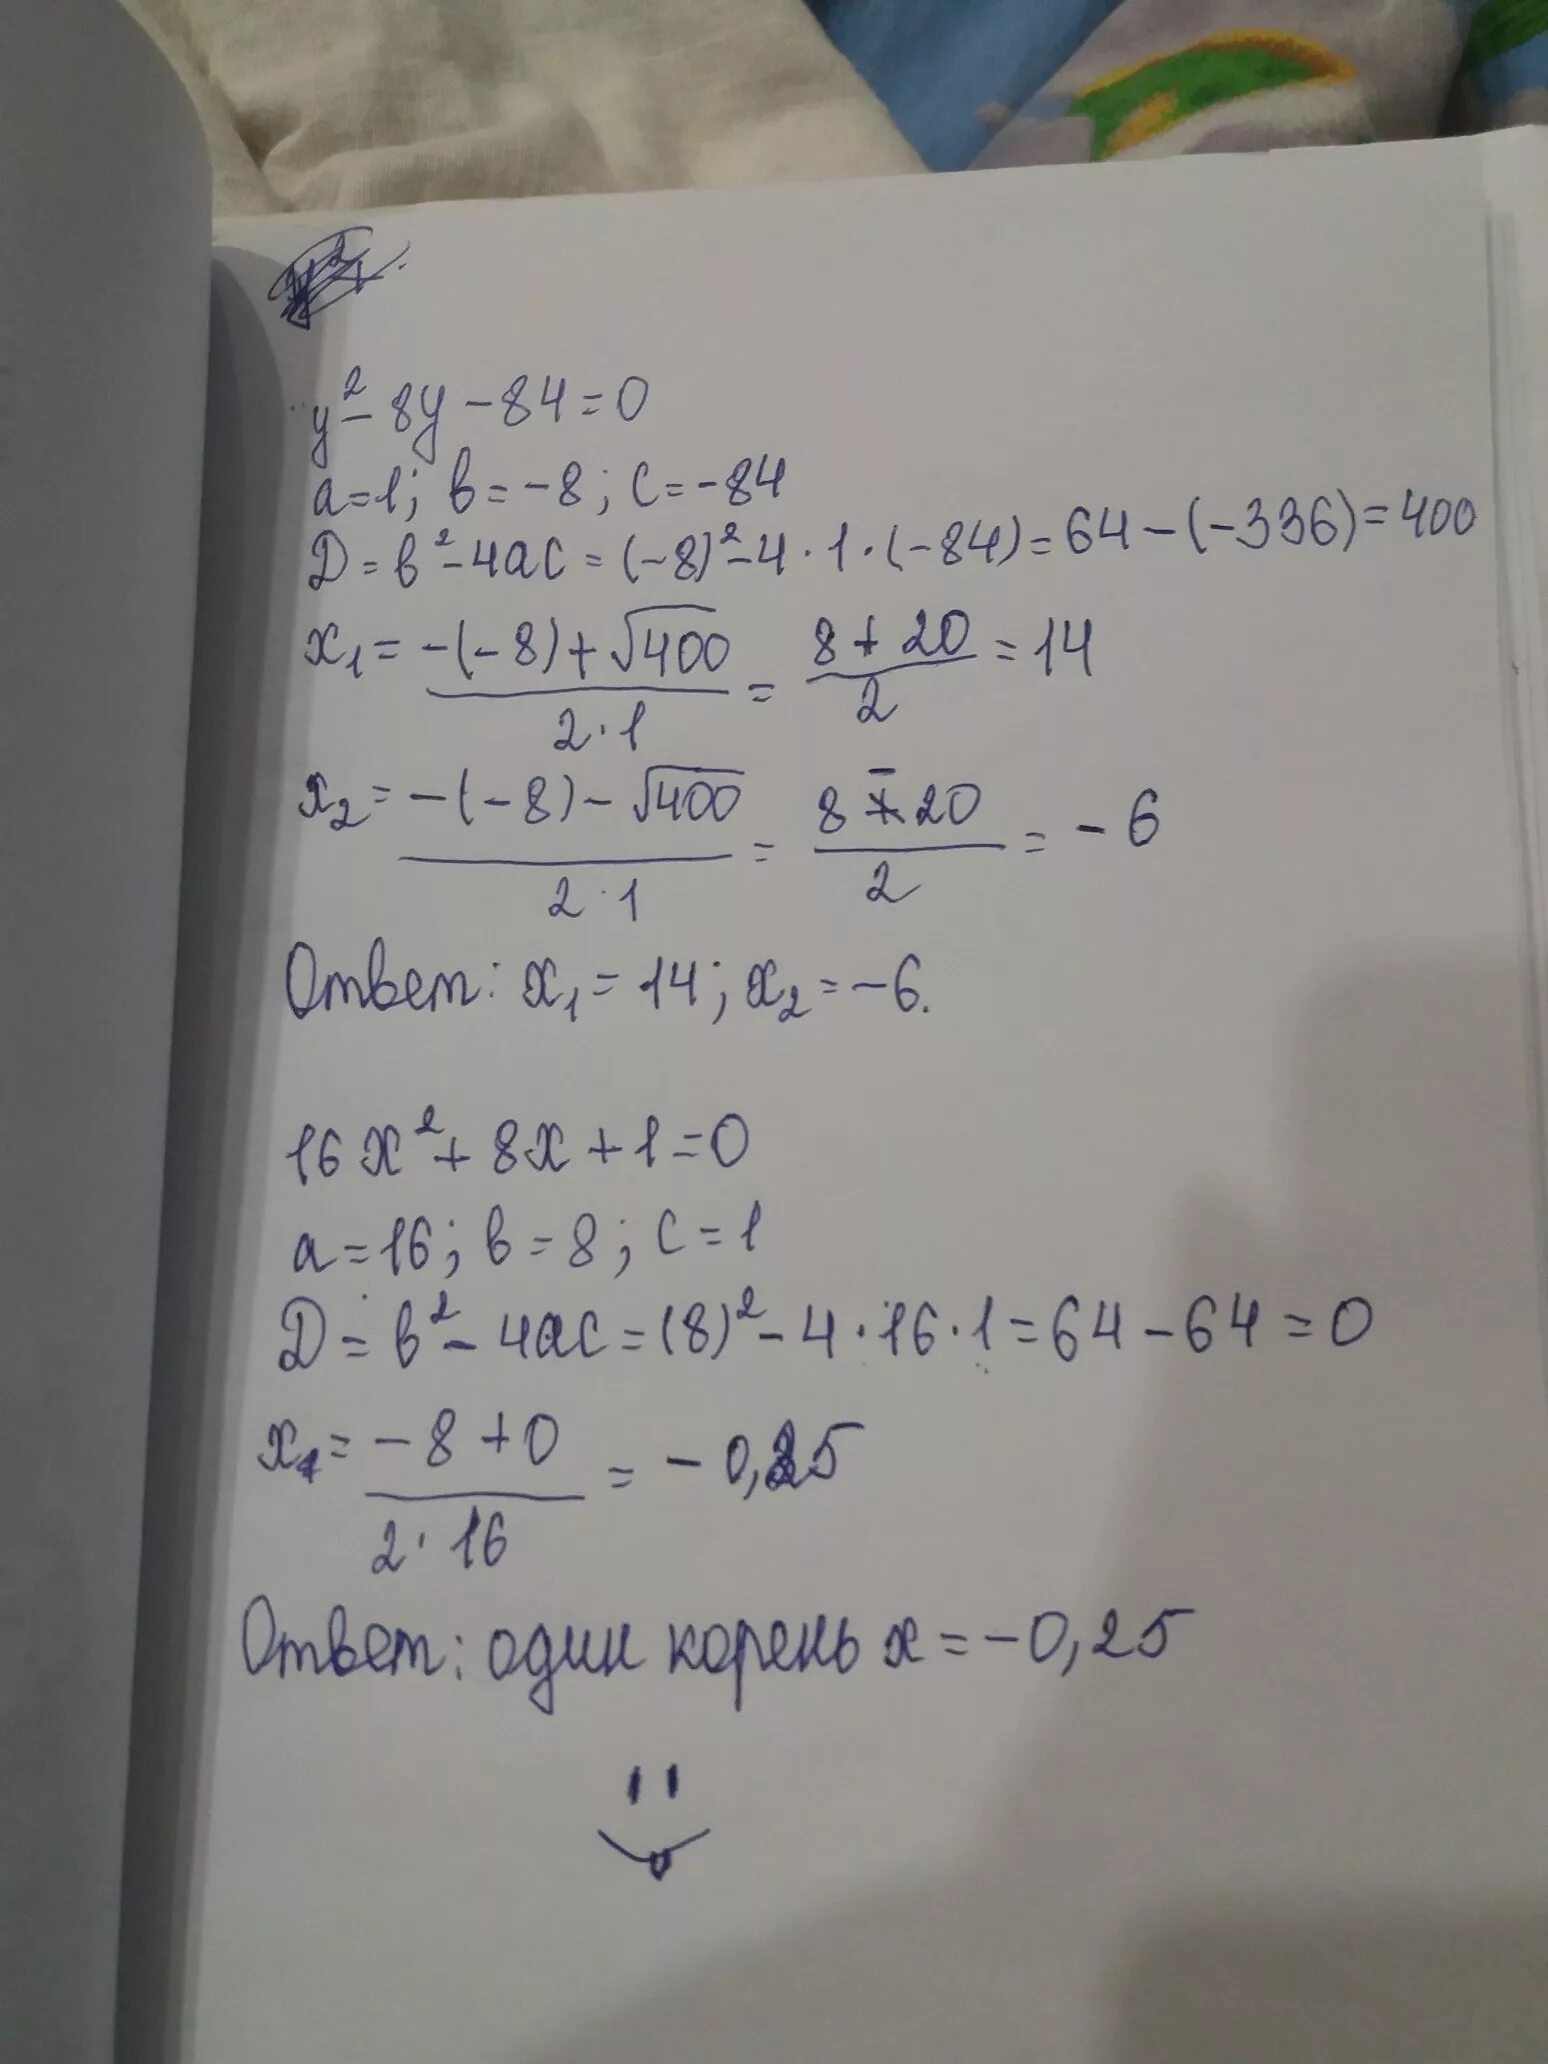 y² - 8y - 84 = 0
a = 1; в = -8; c = -84
D = в² - 4ac = (-8)² - 4 · 1 · (-84) = 64 - (-336) = 400
x₁ = (-(-8) + √400) / (2 · 1) = (8 + 20) / 2 = 14
x₂ = (-(-8) - √400) / (2 · 1) = (8 - 20) / 2 = -6
Ответ: x₁ = 14; x₂ = -6.
16x² + 8x + 1 = 0
a = 16; в = 8; c = 1
D = в² - 4ac = (8)² - 4 · 16 · 1 = 64 - 64 = 0
x₁ = (-8 + 0) / (2 · 16) = -0,25
Ответ: один корень x = -0,25